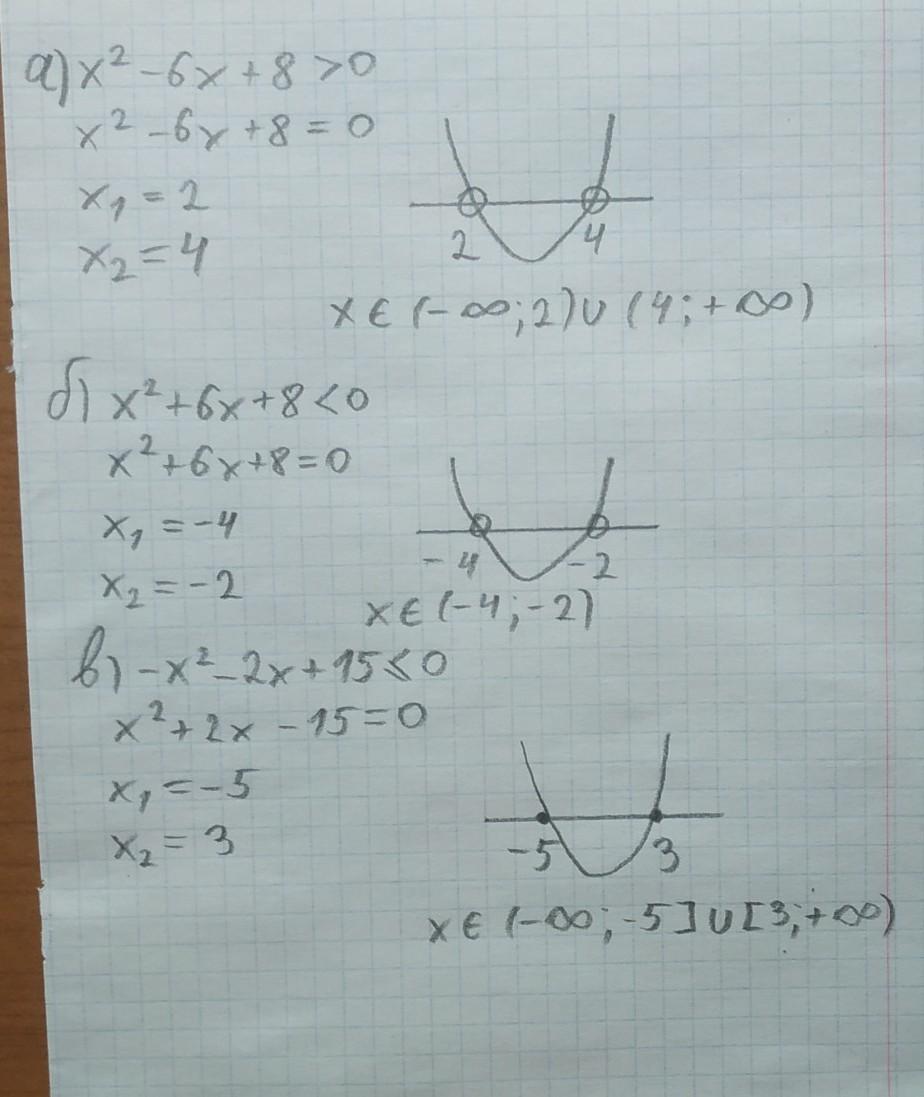 а) x² - 6x + 8 > 0
x² - 6x + 8 = 0
x₁ = 2
x₂ = 4
2 4
x ∈ (-∞; 2) ∪ (4; +∞)
б) x² + 6x + 8 < 0
x² + 6x + 8 = 0
x₁ = -4
x₂ = -2
-4 -2
x ∈ (-4; -2)
в) -x² - 2x + 15 ≤ 0
x² + 2x - 15 = 0
x₁ = -5
x₂ = 3
-5 3
x ∈ (-∞; -5] ∪ [3; +∞)